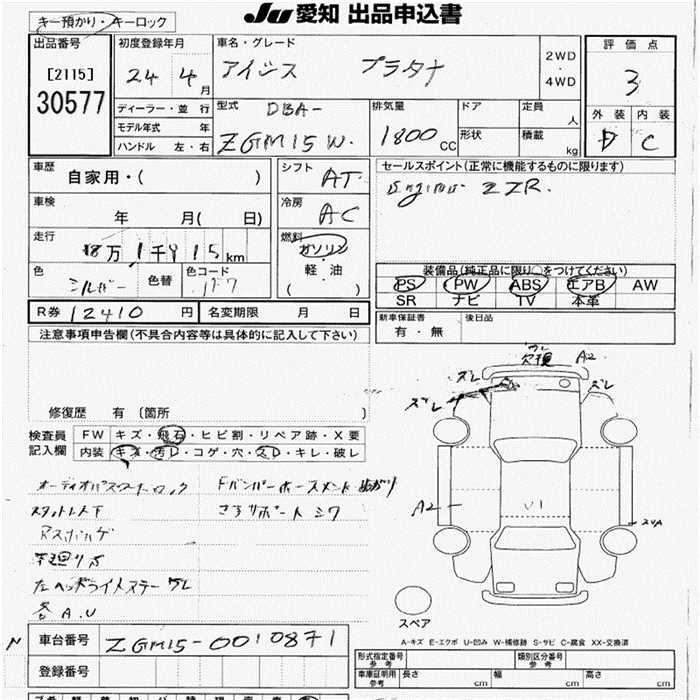 JU 愛知 出品申込書
キー預かり・キーロック
出品番号
[2115]
30577
初度登録年月
24 4月
車名・グレード
アイシス プラタナ
2WD
・
4WD
評価点
3
外装 内装
D C
ディーラー・並行
モデル年式 年
ハンドル 左・右
型式
DBA-
ZGM15W.
排気量
1800 CC
ドア
形状
定員 人
積載 kg
車歴
自家用・( )
シフト
AT
セールスポイント(正常に機能するものに限ります)
Engine ZZR.
車検
年 月( 日)
冷房
AC
走行
8万1千915km
燃料
ガソリン
軽・油
( )
色
シルバー
色替
色コード
装備品(純正品に限り○をつけてください)
PS PW ABS エアB AW
SR ナビ TV 本革
R券 12410円
名変期限 月 日
新車保証書
有・無
後日品
注意事項申告欄(不具合内容等は具体的に記入して下さい)
修復歴 有 〔箇所 〕
検査員
記入欄
FW キズ・飛石・ヒビ割・リペア跡・X要
内装 キズ・汚レ・コゲ・穴・スレ・キレ・破レ
オーディオパスワードロック
左ヘッドライトステーワレ
各A.U
ズレ
ズレ
ズレ
A2
A2
U1
スペア
A-キズ E-エクボ U-凹み W-補修跡 S-サビ C-腐食 XX-交換済
車台番号 ZGM15-0010871
登録番号
型式指定番号
参考
類別区分番号
参考
車庫証明用
参考
長さ cm
幅 cm
高さ cm